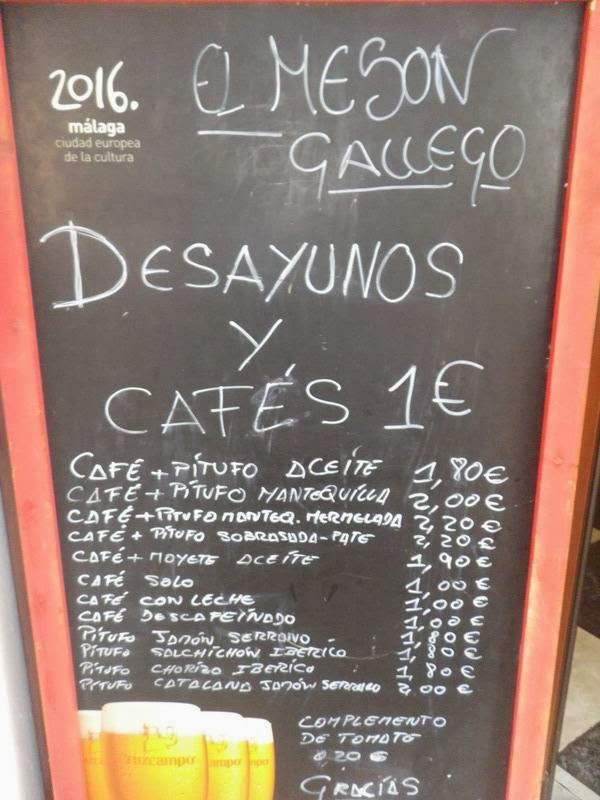 2016.
málaga
ciudad europea
de la cultura
EL MESON
GALLEGO
DESAYUNOS
Y
CAFÉS 1€
CAFÉ + PITUFO ACEITE 1,80€
CAFÉ + PITUFO MANTEQUILLA 2,00€
CAFÉ + PITUFO MANTEQ. MERMELADA 2,20€
CAFÉ + PITUFO SOBRASADA-PATE 2,20€
CAFÉ + MOYETE ACEITE 1,90€
CAFÉ SOLO 1,00€
CAFÉ CON LECHE 1,00€
CAFÉ DESCAFEINADO 1,00€
PITUFO JAMÓN SERRANO 1,80€
PITUFO SALCHICHÓN IBERICO 1,80€
PITUFO CHORIZO IBERICO 1,80€
PITUFO CATALANA JAMÓN SERRANO 2,00€
COMPLEMENTO
DE TOMATE
0,20€
GRACIAS
Cruzcampo